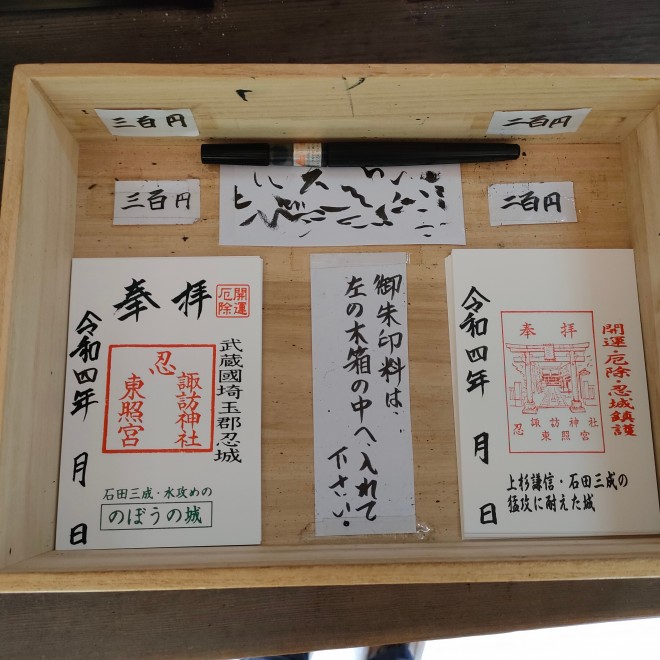 三百円
二百円
三百円
二百円
奉拝
開運
厄除
武蔵國埼玉郡忍城
忍
諏訪神社
東照宮
令和四年 月 日
石田三成・水攻めの
のぼうの城
御朱印料は、
左の木箱の中へ入れて
下さい。
開運厄除・忍城鎮護
奉拝
忍諏訪神社
東照宮
令和四年 月 日
上杉謙信・石田三成の
猛攻に耐えた城